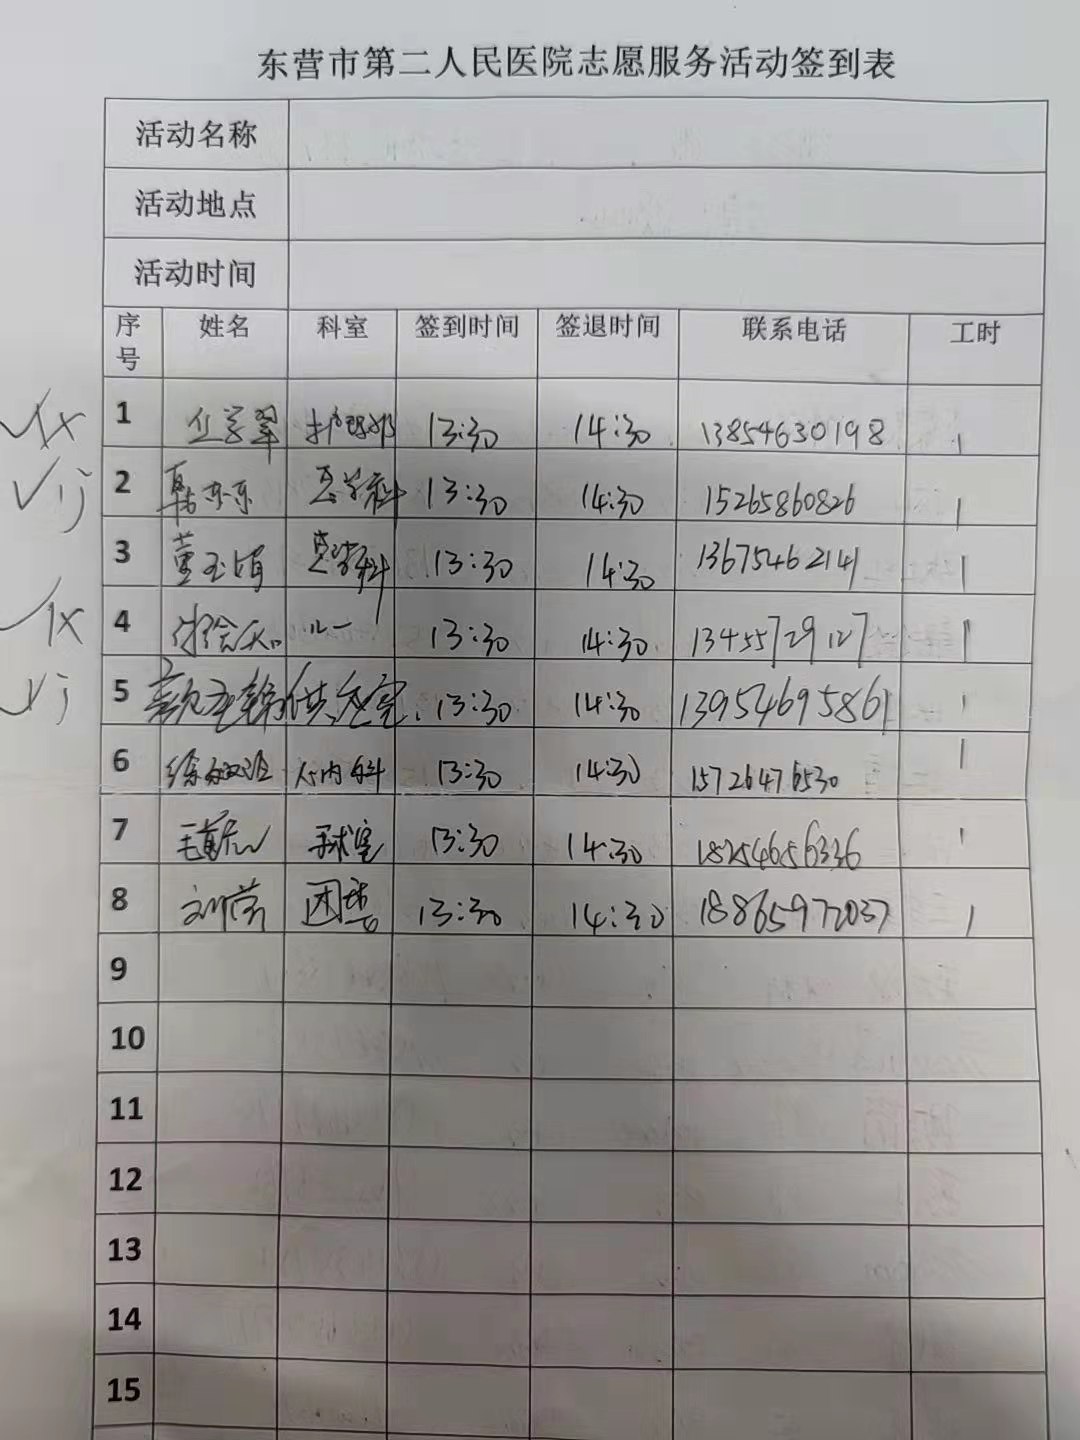 东营市第二人民医院志愿服务活动签到表
活动名称
活动地点
活动时间
序号 姓名 科室 签到时间 签退时间 联系电话 工时
1 护理部 13:30 14:30 13854630198 1
2 13:30 14:30 15265860826 1
3 13:30 14:30 13675462141 1
4 儿一 13:30 14:30 13455729127 1
5 供应室 13:30 14:30 13954695861 1
6 心内科 13:30 14:30 15726476530 1
7 手术室 13:30 14:30 18254656336 1
8 刘营 团委 13:30 14:30 18865972037 1
9
10
11
12
13
14
15